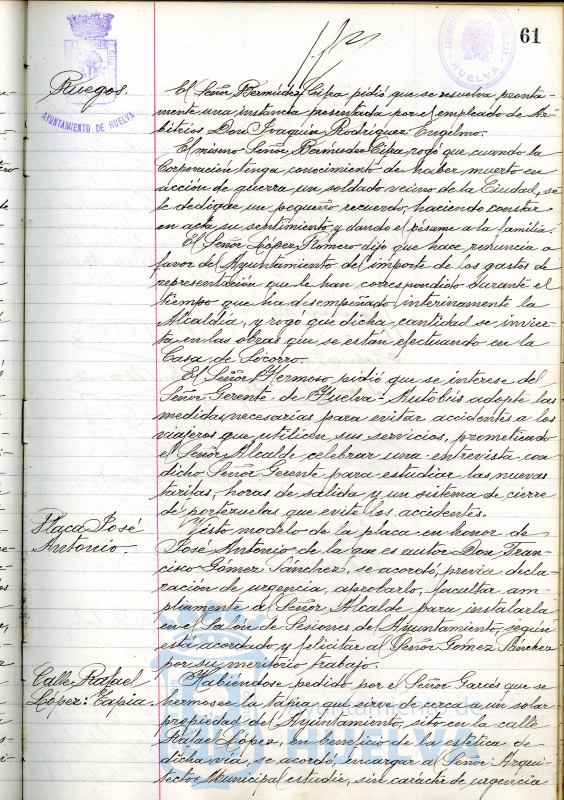 61
AYUNTAMIENTO DE HUELVA
HUELVA
Ruegos.
El Señor Bermúdez Cipa pidió que se resuelva pronta-
mente una instancia presentada por el empleado de Ar-
bitrios Don Joaquín Rodríguez Engelmo.
El mismo Señor Bermúdez Cipa, rogó que cuando la
Corporación tenga conocimiento de haber muerto en
acción de guerra un soldado vecino de la Ciudad, se
le dedique un pequeño recuerdo, haciendo constar
en acta su sentimiento y dando el pésame a la familia.
El Señor López Romero dijo que hace renuncia a
favor del Ayuntamiento del importe de los gastos de
representación que le han correspondido durante el
tiempo que ha desempeñado interinamente la
Alcaldía, y rogó que dicha cantidad se invier-
ta en las obras que se están efectuando en la
Casa de Socorro.
El Señor Hermoso pidió que se interese del
Señor Gerente de Huelva-Autobús adopte las
medidas necesarias para evitar accidentes a los
viajeros que utilicen sus servicios, prometiendo
el Señor Alcalde celebrar una entrevista con
dicho Señor Gerente para estudiar las nuevas
tarifas, horas de salida y un sistema de cierre
de portezuelas que evite los accidentes.
Placa José
Antonio.
Visto modelo de la placa en honor de
José Antonio de la que es autor Don Fran-
cisco Gómez Sánchez, se acordó, previa decla-
ración de urgencia, aprobarlo, facultar am-
pliamente al Señor Alcalde para instalarla
en el Salón de Sesiones del Ayuntamiento, según
está acordado y felicitar al Señor Gomez Sánchez
por su meritorio trabajo.
Calle Rafael
López: Tapia.
Habiéndose pedido por el Señor Garcés que se
hermosee la tapia que sirve de cerca a un solar
propiedad del Ayuntamiento, sito en la calle
Rafael López, en beneficio de la estética de
dicha vía, se acordó, encargar al Señor Arqui-
tecto Municipal estudie, sin carácter de urgencia
Ayuntamiento de
HUELVA